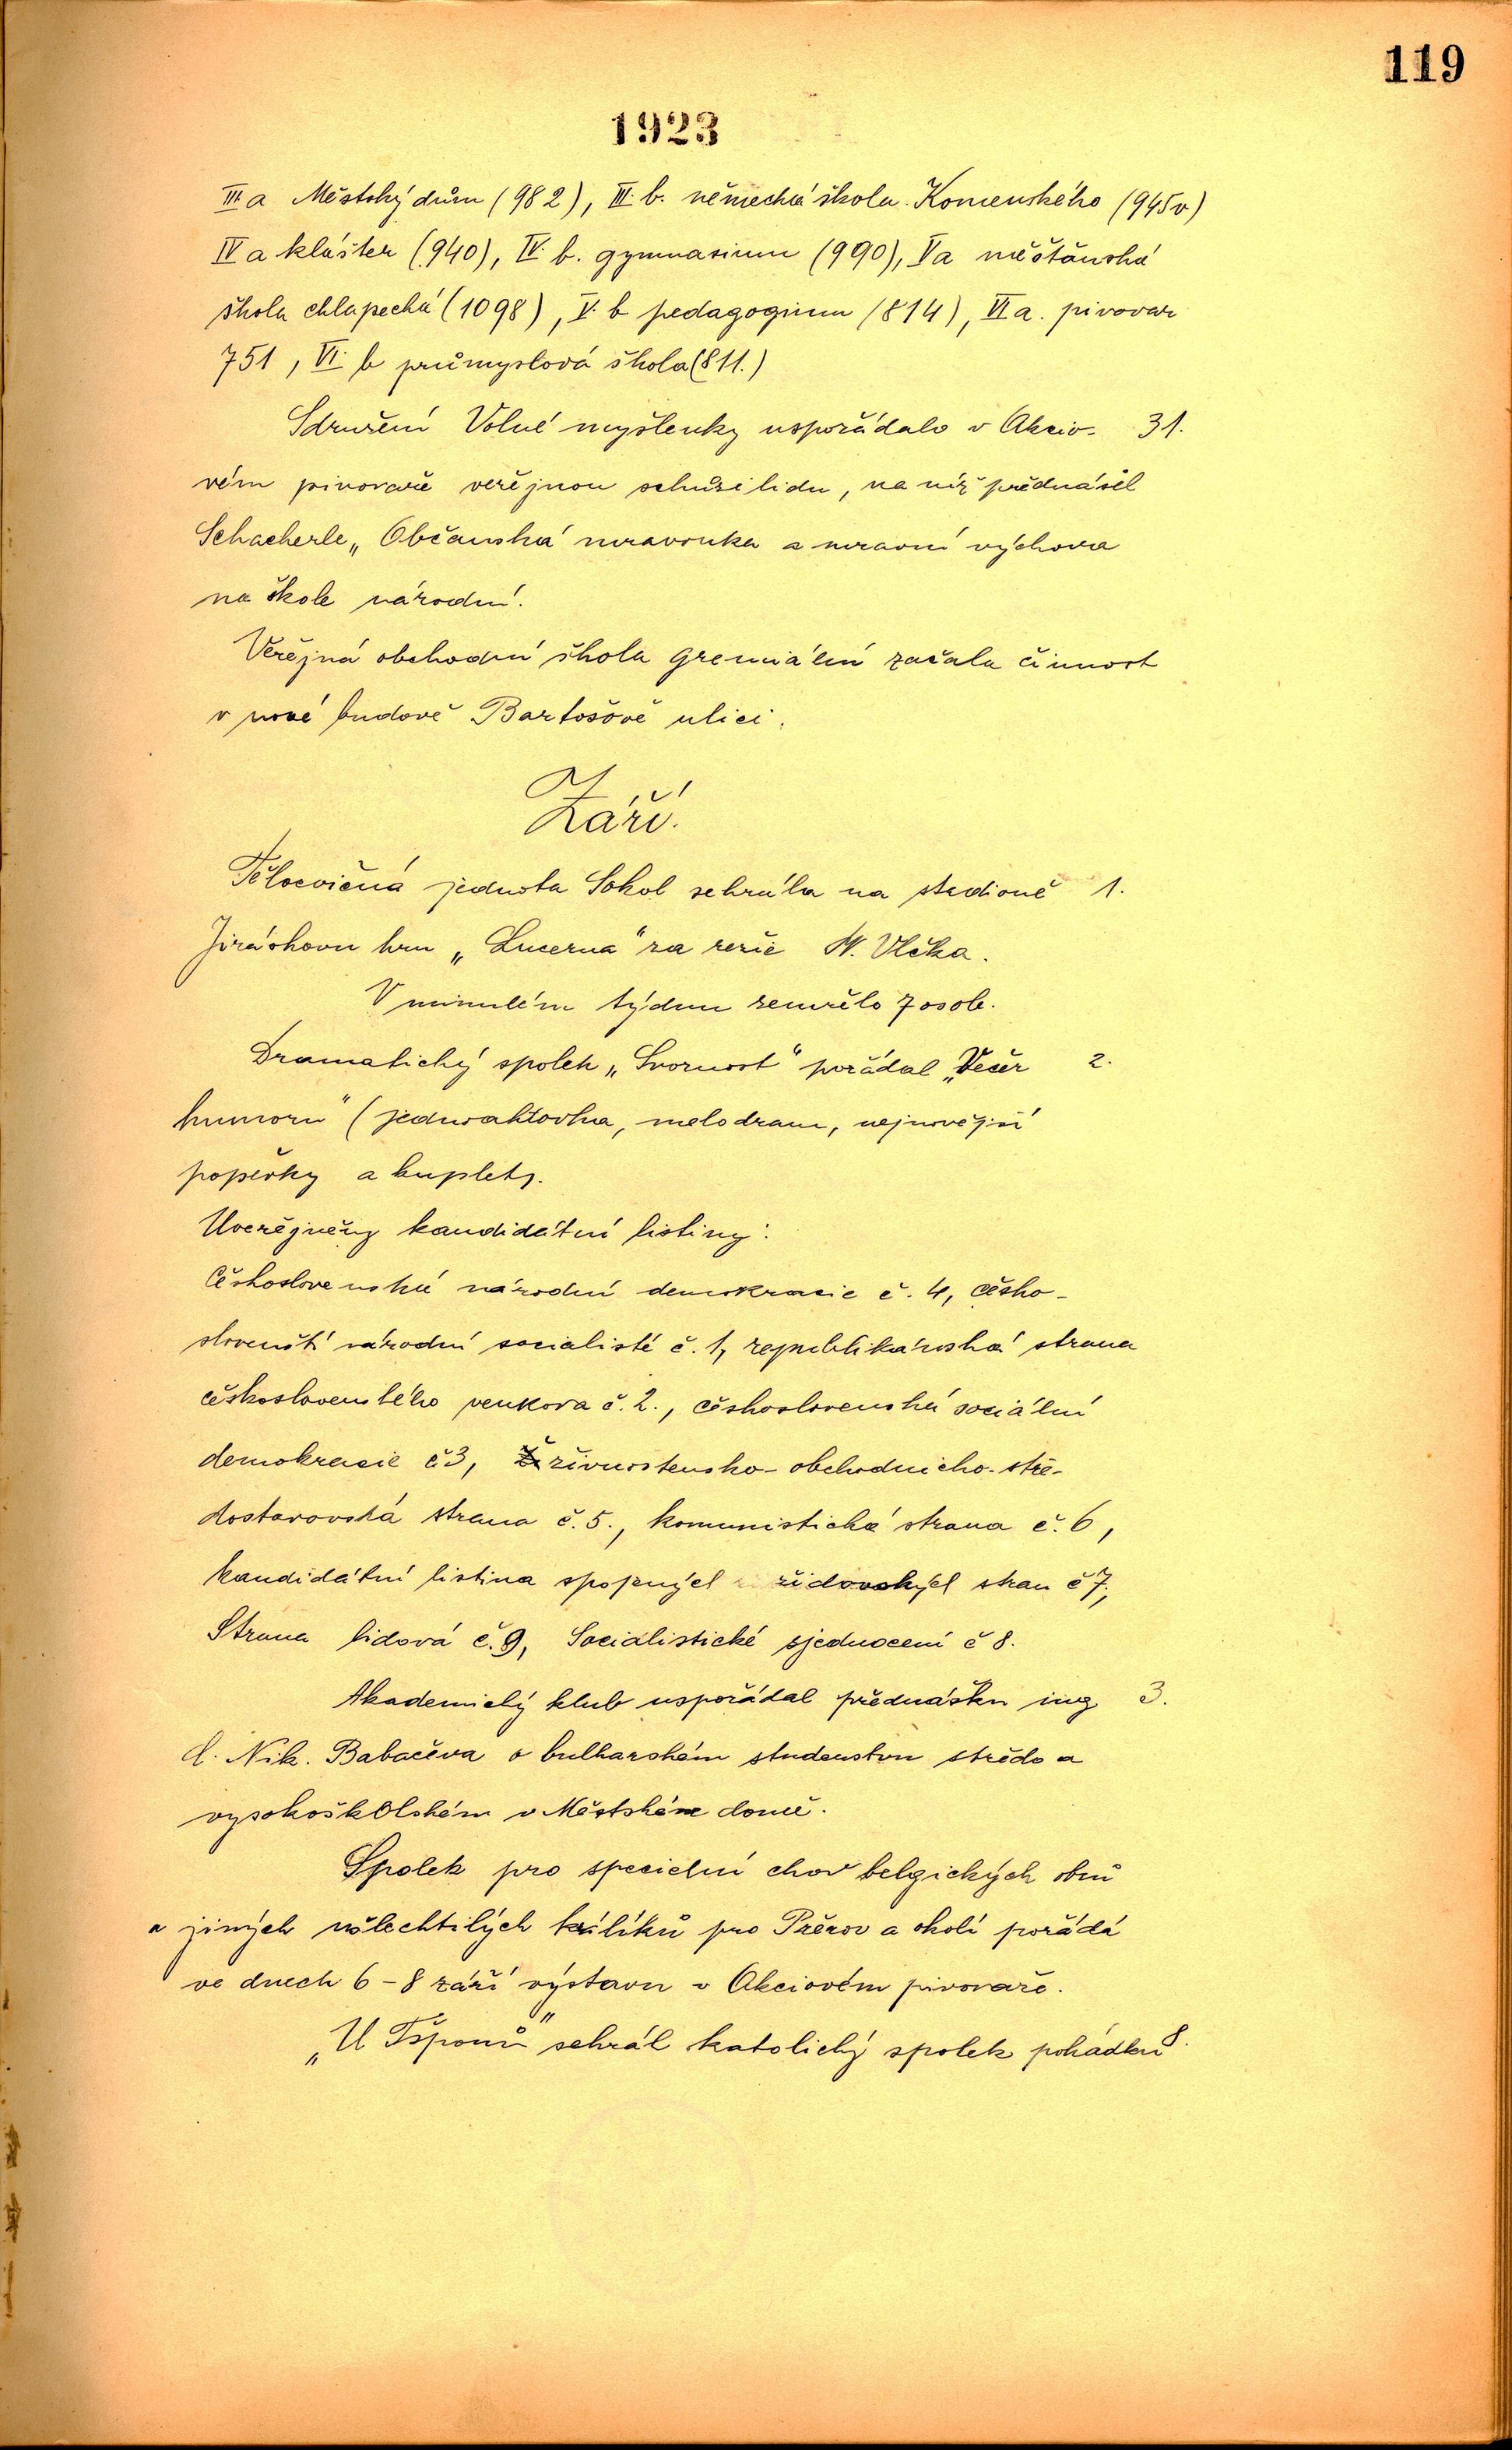 119
1923
III. a Městský dům (982), III. b. německá škola Komenského (945v)
IV a klášter (940), IV. b. gymnasium (990), V a měšťanská
škola chlapecká (1098), V. b pedagogium (814), VI a. pivovar
751, VI. b průmyslová škola (811.)
Sdružení Volné myšlenky uspořádalo v Akcio- 31.
vém pivovaře veřejnou schůzi lidu, na níž přednášel
Schacherle „Občanská mravouka a mravní výchova
na škole národní.
Veřejná obchodní škola gremiální začala činnost
v nové budově Bartošově ulici.
Září.
Tělocvičná jednota Sokol sehrála na stadioně 1.
Jiráskovu hru „Lucerna" za režie W. Vlčka.
V minulém týdnu zemřelo 7 osob.
Dramatický spolek „Svornost" pořádal „Večer 2.
humoru" (jednoaktovka, melodram, nejnovější
popěvky a kuplety.
Uveřejněny kandidátní listiny:
Československá národní demokracie č. 4, česko-
slovenští národní socialisté č. 1, republikánská strana
československého venkova č. 2., československá sociální
demokracie č 3, živnostensko-obchodnicko-stře-
dostavovská strana č. 5., komunistická strana č. 6,
kandidátní listina spojených židovských stran č 7.,
Strana lidová č. 9, Socialistické sjednocení č 8.
Akademický klub uspořádal přednášku ing 3.
d. Nik. Babačeva o bulharském studenstvu středo a
vysokoškolském v Městském domě.
Spolek pro specielní chov belgických obrů
a jiných ušlechtilých králíků pro Přerov a okolí pořádá
ve dnech 6-8 září výstavu v Akciovém pivovaře.
„U Tšponů" sehrál katolický spolek pohádku 8.